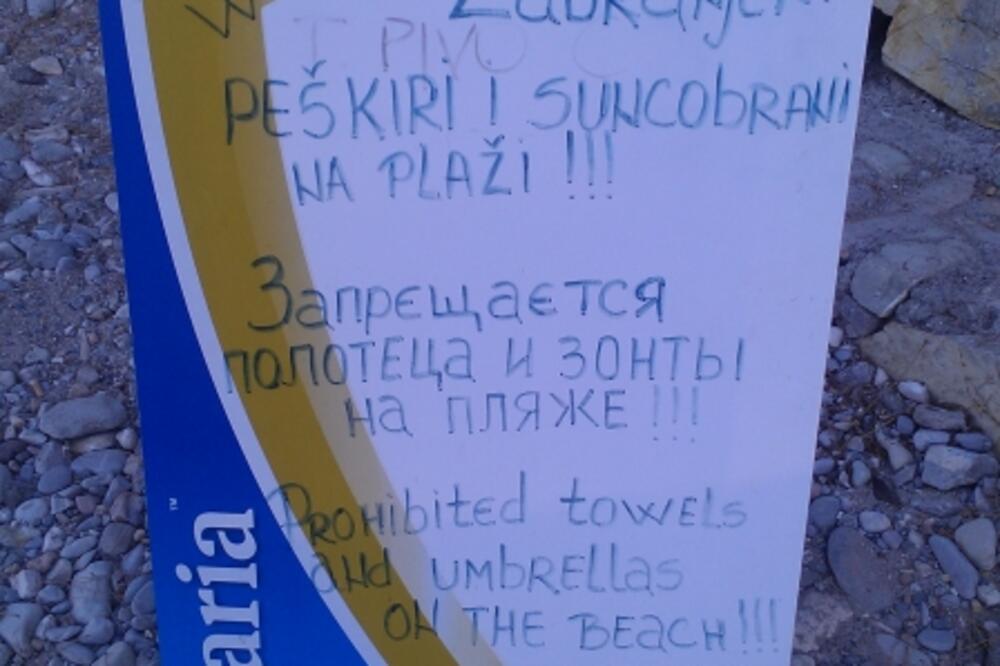 Zabranjeni
T PIVO
PEŠKIRI I SUNCOBRANI
NA PLAŽI !!!
Запрещается
полотеца и зонты
на пляже !!!
Prohibited towels
and umbrellas
on the beach !!!
aria™